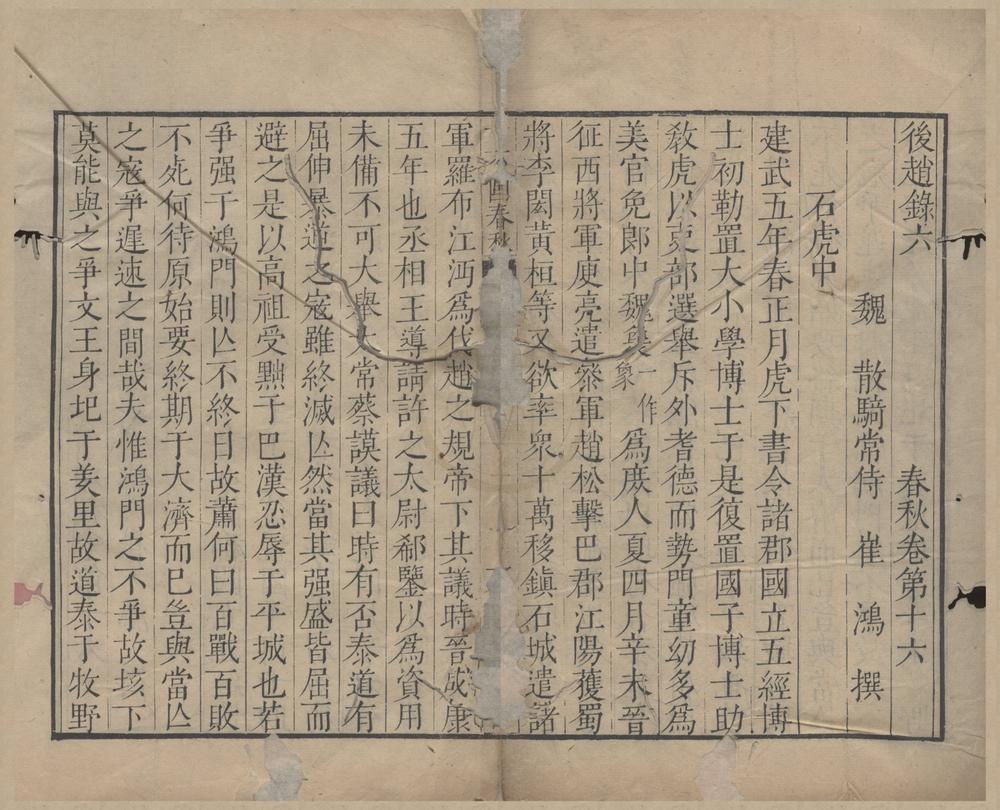 後趙錄六 春秋卷第十六
魏 散騎常侍 崔 鴻 撰
石虎中
建武五年春正月虎下書令諸郡國立五經博
士初勒置大小學博士于是復置國子博士助
敎虎以吏部選舉斥外耆德而勢門童幼多爲
美官免郎中魏㚟一作㒸爲庶人夏四月辛未晉
征西將軍庾亮遣叅軍趙松擊巴郡江陽獲蜀
將李閎黃桓等又欲率衆十萬移鎭石城遣諸
國春秋
軍羅布江沔爲伐趙之規帝下其議時晉成康
五年也丞相王導請許之太尉郗鑒以爲資用
未備不可大舉太常蔡謨議曰時有否泰道有
屈伸暴逆之寇雖終滅亾然當其强盛皆屈而
避之是以高祖受黜于巴漢忍辱于平城也若
爭强于鴻門則亾不終日故蕭何曰百戰百敗
不死何待原始要終期于大濟而已豈與當亾
之寇爭遲速之間哉夫惟鴻門之不爭故垓下
莫能與之爭文王身圯于羑里故道泰于牧野